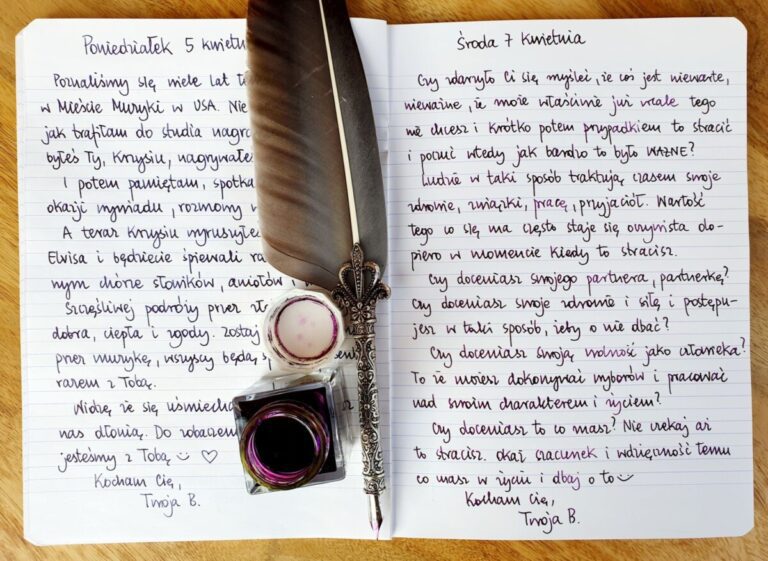 Poniedziałek 5 kwietn
Poznaliśmy się wiele lat te
w Mieście Muzyki w USA. Nie
jak trafiłam do studia nagra
byłeś Ty, Krzysiu, nagrywałe
I potem pamiętam, spotka
okazji wywiadu, rozmowy w
A teraz Krzysiu wyruszyłe
Elvisa i będziecie śpiewali ra
nym chórze słowików, aniołów i
Szczęśliwej podróży przez
dobra, ciepła i zgody. Zostaj
przez muzykę, wszyscy będą
razem z Tobą.
Widzę że się uśmiech
nas dłonią. Do zobaczen
jesteśmy z Tobą :) ♡
Kocham Cię,
Twoja B.
Środa 7 kwietnia
Czy zdarzyło Ci się myśleć, że coś jest niewarte,
nieważne, że może właściwie już wcale tego
nie chcesz i krótko potem przypadkiem to stracić
i poczuć wtedy jak bardzo to było WAŻNE?
Ludzie w taki sposób traktują czasem swoje
zdrowie, związki, pracę, przyjaciół. Wartość
tego co się ma często staje się oczywista do-
piero w momencie kiedy to stracisz.
Czy doceniasz swojego partnera, partnerkę?
Czy doceniasz swoje zdrowie i siłę i postępu-
jesz w taki sposób, żeby o nie dbać?
Czy doceniasz swoją wolność jako człowieka?
To że możesz dokonywać wyborów i pracować
nad swoim charakterem i życiem?
Czy doceniasz to co masz? Nie czekaj aż
to stracisz. Okaż szacunek i wdzięczność temu
co masz w życiu i dbaj o to :)
Kocham Cię,
Twoja B.